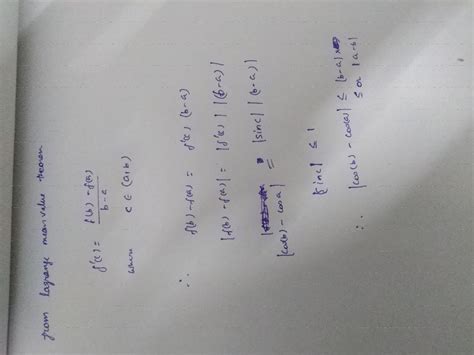 from Lagrange mean value theorem
f'(c) = f(b) - f(a) / b-a
where c ∈ (a,b)
∴ f(b) - f(a) = f'(c) (b-a)
|f(b) - f(a)| = |f'(c)| |(b-a)|
|cos(b) - cosa| = |sinc| |(b-a)|
|sinc| ≤ 1
∴ |cos(b) - cos(a)| ≤ |b-a|
≤ or |a-b|